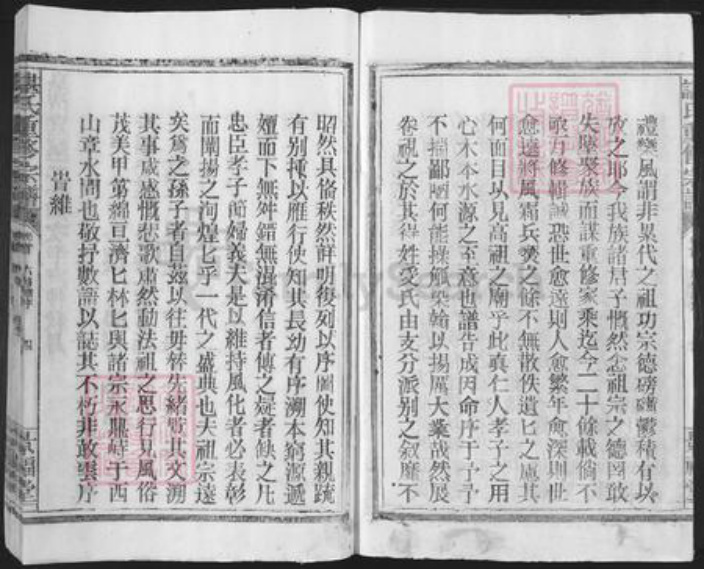 禮樂風謂非累代之祖功宗德磅礴鬱積有以
致之耶今我族諸君子慨然念祖宗之德罔敢
失墜聚族而謀重修家乘迄今二十餘載倘不
亟乃修輯誠恐世愈遠則人愈繁年愈深則世
愈遠將風霜兵燹之餘不無散佚遺亡之慮其
何面目以見高祖之廟乎此真仁人孝子之用
心木本水源之至意也譜告成因命序于予予
不揣鄙陋何能操觚染翰以揚厥大業哉然展
卷視之於其得姓受氏由支分派别之叙靡不
昭然具俻秩然詳明復列以序圖使知其親䟽
有别揰以雁行使知其長幼有序溯本窮源遞
嬗而下無舛錯無混淆信者傳之疑者缺之凡
忠臣孝子節婦義夫是以維持風化者必表彰
而闡揚之洵煌匕乎一代之盛典也夫祖宗遠
矣為之孫子者自茲以往毋替先緒覽其文溯
其事咸感慨悲歌肅然動法祖之思行見風俗
茂美甲第綿亘濟匕林匕與諸宗永鼎峙于西
山章水間也敬抒數語以誌其不朽非敢雲序
旹維
氏重修宗譜